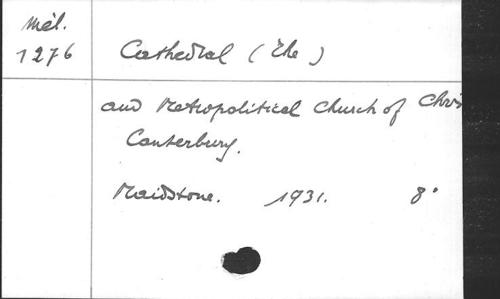 Mél.
1276
Cathedral (The)
and Metropolitical Church of Chris
Canterbury.
Maidstone. 1931. 8°